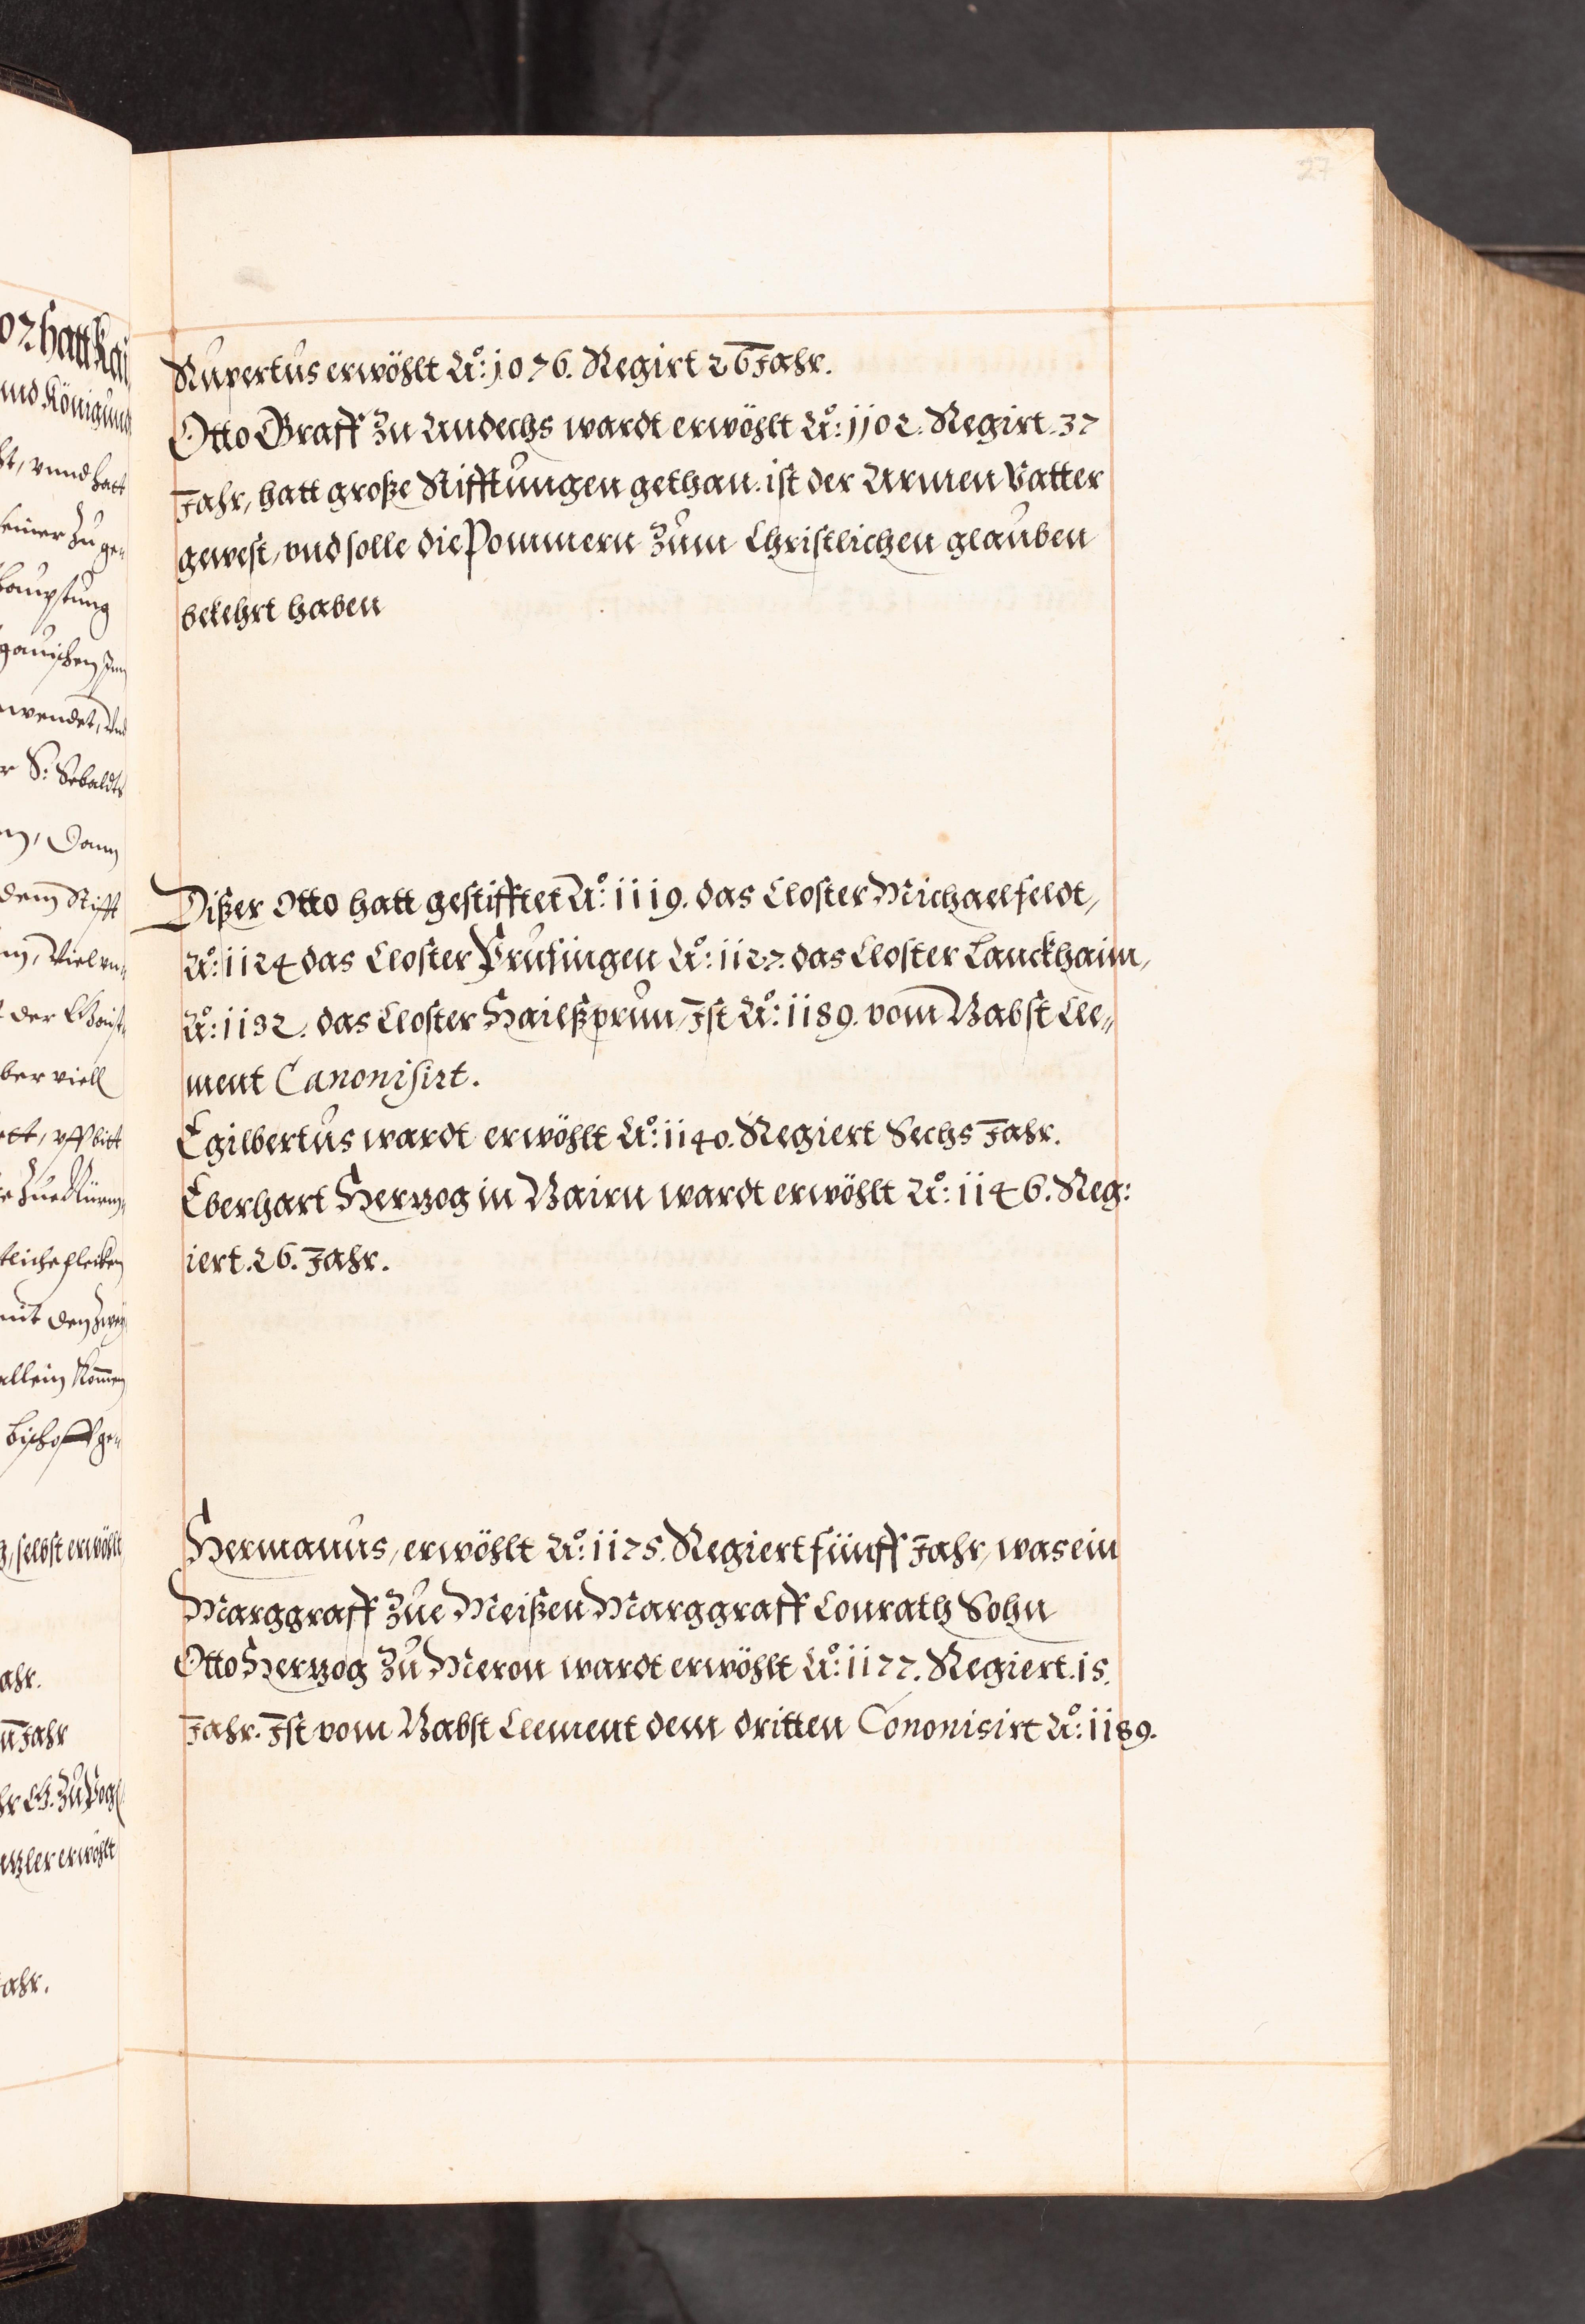 27
Rupertus erwöhlt Ao: 1076. Regirt 26 Jahr.
Otto Graff Zu Andechs wardt erwöhlt Ao: 1102. Regirt. 37
Jahr, hatt große Stifftungen gethan. ist der Armen Vatter
gewest, vnd solle die Pommern Zum Christlichen glauben
bekehrt haben
Dißer Otto hatt gestifftet Ao: 1119. das Closter Michaelfeldt,
Ao: 1124 das Closter Prufingen Ao: 1127. das Closter Lanckhaim,
Ao: 1132. das Closter Hailßprun, Ist Ao: 1189. vom Babst Cle„
ment Canonisirt.
Egilbertus wardt erwöhlt Ao: 1140. Regiert Sechs Jahr.
Eberhart Hertzog in Bairn wardt erwöhlt Ao: 1146. Reg:
iert. 26. Jahr.
Hermanus, erwöhlt Ao: 1175. Regiert fünff Jahr, was ein
Marggraff Zue Meißen Marggraff Conrath Sohn
Otto Hertzog Zu Meron wardt erwöhlt Ao: 1177. Regiert. 15.
Jahr. Ist vom Babst Clement dem dritten Cononisirt Ao: 1189.